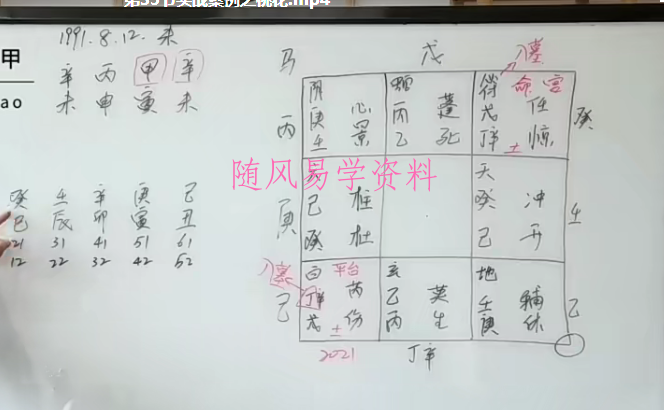 第55节实战案例之桃花.mp4
甲
ao
1991.8.12.未
辛 丙 甲 辛
未 申 寅 未
癸 壬 辛 庚 己
巳 辰 卯 寅 丑
21 31 41 51 61
12 22 32 42 52
马 戊 入墓
丙 阴 心 丙 蓬 符 命宫 癸
庚 戊 任
壬 景 乙 死 丁辛 土 惊
随风易学资料
庚 己 柱 天 癸 冲 壬
癸 杜 己 开
入墓 白 平台 玄 地
己 丁辛 芮 乙 英 壬 辅 乙
戊 土 伤 丙 生 庚 休
2021 丁辛